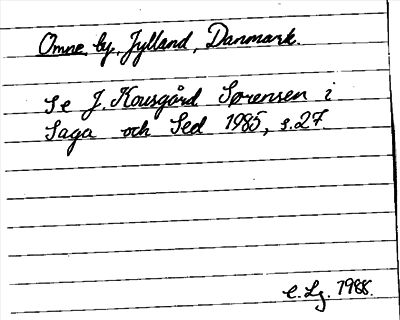 Omne, by, Jylland, Danmark.
Se J. Kousgård Sørensen i
Saga och Sed 1985, s.27.
E. Lg. 1988.